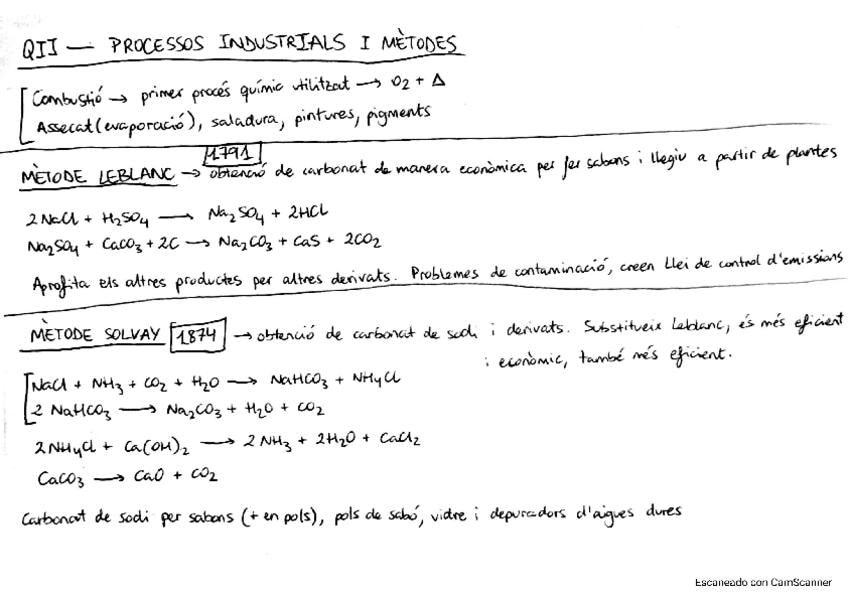 QII — PROCESSOS INDUSTRIALS I MÈTODES
Combustió → primer procés químic utilitzat → O2 + Δ
Assecat (evaporació), saladura, pintures, pigments
MÈTODE LEBLANC 1791 → obtenció de carbonat de manera econòmica per fer sabons i llegiu a partir de plantes
2 NaCl + H2SO4 → Na2SO4 + 2HCl
Na2SO4 + CaCO3 + 2C → Na2CO3 + CaS + 2CO2
Aprofita els altres productes per altres derivats. Problemes de contaminació, creen Llei de control d'emissions
MÈTODE SOLVAY 1874 → obtenció de carbonat de sodi i derivats. Substitueix Leblanc, és més eficient
i econòmic, també més eficient.
NaCl + NH3 + CO2 + H2O → NaHCO3 + NH4Cl
2 NaHCO3 → Na2CO3 + H2O + CO2
2 NH4Cl + Ca(OH)2 → 2 NH3 + 2H2O + CaCl2
CaCO3 → CaO + CO2
Carbonat de sodi per sabons (+ en pols), pols de sabó, vidre i depuradors d'aigues dures
Escaneado con CamScanner